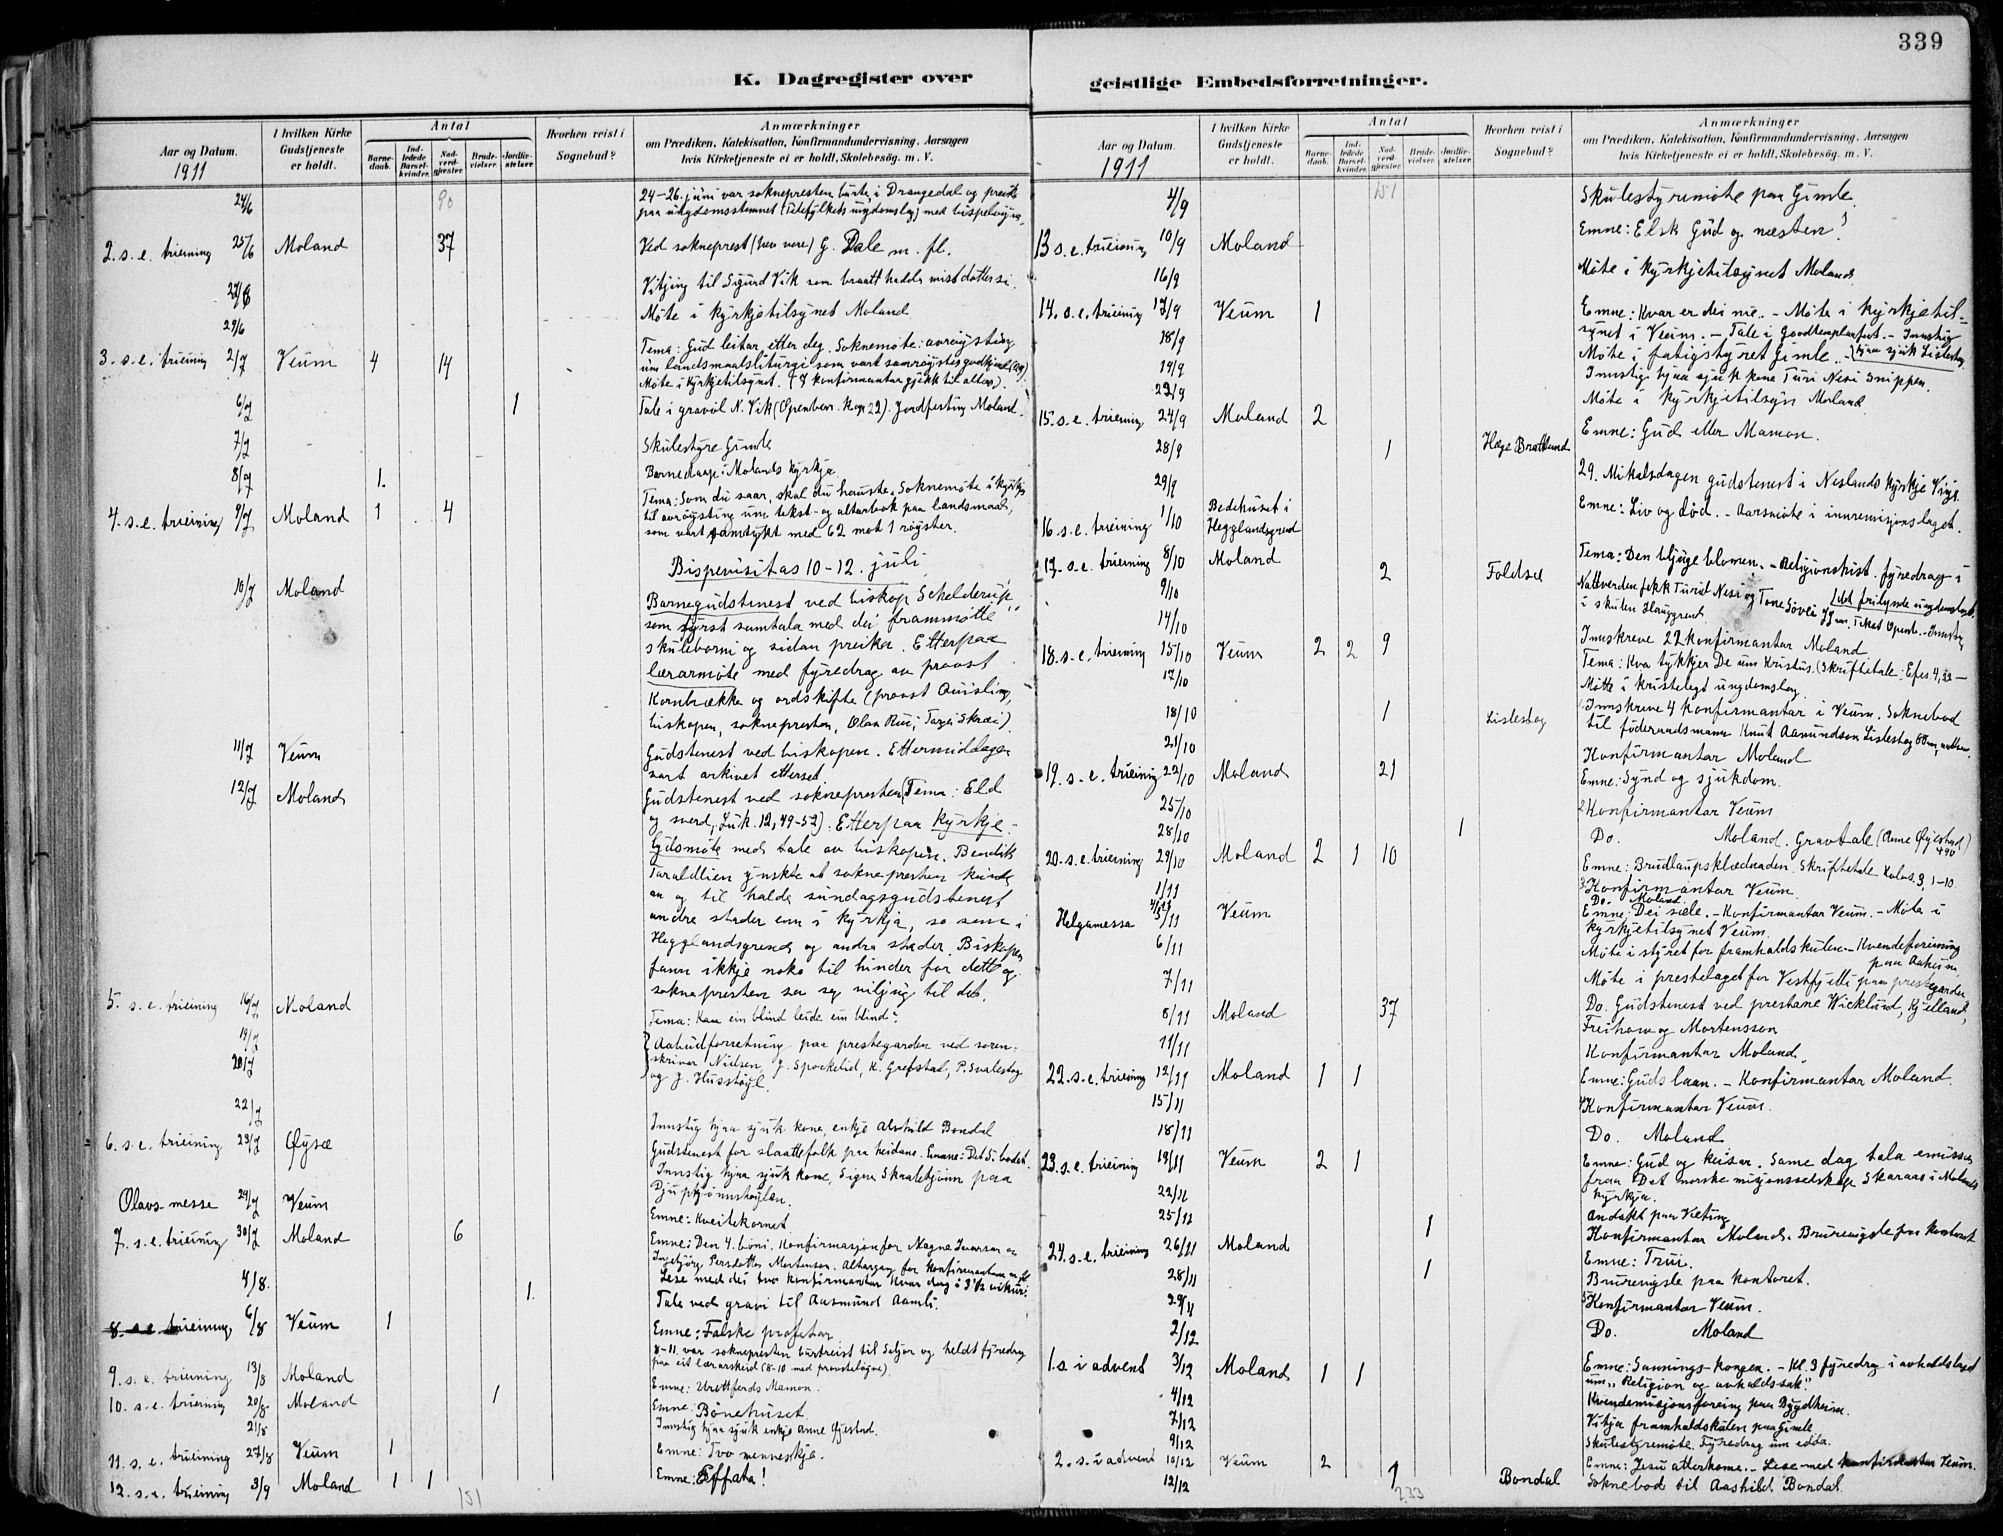 339
K. Dagregister over geistlige Embedsforretninger.
Aar og Datum. 1911
I hvilken Kirke Gudstjeneste er holdt.
Antal
Barnedaab.
Indledede Barselkvinder.
Nadverdgjæster.
Brudevielser.
Jordfæstelser.
Hvorhen reist i Sognebud?
Anmærkninger
om Prædiken, Katekisation, Konfirmandundervisning. Aarsagen
hvis Kirketjeneste ei er holdt. Skolebesög. m. V.
24/6 90 24-26. juni var soknepresten burte i Drangedal og
paa ungdomsstemnet (Telefylkets ungdomslag) med
2. s. e. trieining 25/6 Moland 37 Ved sokneprest G. Dale m. fl.
Vitjing til Sigurd Vik som hadde mist dotter si.
29/6 Møte i kyrkjetilsynet Moland
3. s. e. trieining 2/7 Veum 4 14 Tema: Gud leitar etter deg. Soknemøte: avrøysting
um landsmaalsliturgi som vart samrøystes godkjend
Møte i kyrkjetilsynet. (8 konfirmantar gjekk til altars).
6/7 1 Tale i gravøl N. Vik (Openber. kap 22). Jordfesting Moland.
7/7 Skulestyre Gimle
8/7 1. Barnedaap i Molands kyrkja
4. s. e. trieining 9/7 Moland 1 4 Tema: Som du saar, skal du hauste. Soknemøte i kyrkja
til avrøysting um tekst- og altarbok paa landsmaal,
som vart samtykt med 62 mot 1 røyster.
Bispevisitas 10-12. juli
10/7 Moland Barnegudstenest ved biskop Schelderup,
som fyrst samtala med dei frammøtte
skuleborni og sidan preika. Etterpaa
lærarmøte med fyredrag av prost
Kornbrække og ordskifte (prost Quisling,
biskopen, soknepresten, Olav Rui, Targei Skræi).
11/7 Veum Gudstenest ved biskopen. Ettermiddagen
vart arkivet ettersed.
12/7 Moland Gudstenest ved soknepresten (Tema: Eld
og sverd, Luk. 12, 49-52). Etterpaa kyrkje-
lydsmøte med tale av biskopen. Bendik
Taraldlien ynskte at soknepresten kunde
av og til halde sundagsgudstenest
andre stader enn i kyrkja, so som i
Hegglandsgrend og andre stader. Biskopen
fann ikkje noko til hinder for dette og
soknepresten sa seg viljug til det.
5. s. e. trieining 16/7 Moland Tema: Kan ein blind leide ein blind?
19/7 Aabudforretning paa prestegarden ved soren-
20/7 skrivar Nielsen, J. Spokelid, K. Grefstad, P. Svalestog
og J. Husstøyl.
22/7 Innstig hjaa sjuk kone, enkje Aashild Bondal
6. s. e. trieining 23/7 Øysæ Gudstenest for slaattefolk paa heidane. Emne: Det 5. bodet.
Innstig hjaa sjuk kone, Signe Skaaletjønn paa
Djuptjønnstøylen.
Olavs-messe 29/7 Veum Emne: Kveitekornet
7. s. e. trieining 30/7 Moland 6 Emne: Den 4. bøni. Konfirmasjon for Magne Ivarson og
Ingebjørg Persdotter Mortenson. Altargang for konfirmantane m. fl.
Lese med dei tvo konfirmantar kvar dag i 3 1/2 vikur.
4/8. 1. Tale ved gravi til Aasmund Aamli.
8. s. e. trieining 6/8 Veum 1 Emne: Falske profetar
8-11 var soknepresten burtreist til Seljor og heldt fyredrag
paa eit lærarskeid (8-10 med provsteløyve).
9. s. e. trieining 13/8 Moland Emne: Urettferds Mamon.
10. s. e. trieining 20/8 Moland 1 Emne: Bønehuset
21/8 Innstig hjaa sjuk enkje Anne Øystad.
11. s. e. trieining 27/8 Veum 1 Emne: Tvo menneskja.
12. s. e. trieining 3/9 Moland 1 1 Emne: Effata!
151
Aar og Datum. 1911
I hvilken Kirke Gudstjeneste er holdt.
Antal
Barnedaab.
Indledede Barselkvinder.
Nadverdgjæster.
Brudevielser.
Jordfæstelser.
Hvorhen reist i Sognebud?
Anmærkninger
om Prædiken, Katekisation, Konfirmandundervisning. Aarsagen
hvis Kirketjeneste ei er holdt. Skolebesög. m. V.
4/9 151 Skulestyremøte paa Gimle.
13 s. e. trieining 10/9 Moland Emne: Elsk Gud og næsten!
16/9 Møte i kyrkjetilsynet Moland.
14. s. e. trieining 17/9 Veum 1 Emne: Kvar er dei nie. - Møte i kyrkjetil-
synet i Veum. - Tale i Goodtemplarfest. - Innstig
18/9 Møte i fatigstyret Gimle. hjaa sjuk Lislestog
19/9 Innstig hjaa sjuk kone Turi Nesi Snippen.
22/9 Møte i kyrkjetilsyn Moland
15. s. e. trieining 24/9 Moland 2 Emne: Gud eller Mamon.
28/9 1 Hæge Brattlund
29/9 29. Mikalsdagen gudstenest i Neslands kyrkje Vinje.
16. s. e. trieining 1/10 Bedehuset i Hegglandsgrend Emne: Liv og død. - Aarsmøte i innremisjonslaget.
17. s. e. trieining 8/10 Moland Tema: Den bljuge blomen. - Religionshist. fyredrag i
det frilynde ungdomslaget
9/10 2 Foldsæ Nattverden fekk Turid Nesi og Tone Søvli
i skulen Hauggrend
14/10 Innskreve 22 konfirmantar Moland
18. s. e. trieining 15/10 Veum 2 2 9 Tema: Kva tykkjer De um Kristus. (Skriftetale: Efes. 4, 22-
17/10 Møte i kristelegt ungdomslag
18/10 1 Lislestog Innskreve 4 konfirmantar i Veum. Soknebod
til föderaadsmann Knut Aamundson Lislestog
21/10 Konfirmantar Moland
19. s. e. trieining 22/10 Moland 21 Emne: Synd og sjukdom.
25/10 2 Konfirmantar Veum
28/10 1 Do. Moland. Gravtale (Anne Øystad)
20. s. e. trieining 29/10 Moland 2 1 10 Emne: Brudlaupsklædnaden. Skriftetale Kolos. 3, 1-10
1/11 3 Konfirmantar Veum
4/11 Do. Moland
Helgamessa 5/11 Veum Emne: Dei sæle. - Konfirmantar Veum. - Møte i
kyrkjetilsynet Veum.
6/11 Møte i styret for framhaldskulen. - Kvendeforeining
paa Aaheim
7/11 Møte i prestelaget for Vestfjelli paa prestegarden
8/11 Moland 37 Do. Gudstenest ved prestane Wicklund, Kjelland,
Freihow og Mortensson
11/11 Konfirmantar Moland.
22. s. e. trieining 12/11 Moland 1 1 Emne: Guds laan. - Konfirmantar Moland.
15/11 4 Konfirmantar Veum.
18/11 Do. Moland
23. s. e. trieining 19/11 Veum 2 1 Emne: Gud og keisar. Same dag tala emissær
fraa Det norske misjonsselskap Skaraas i Molands
kyrkja.
22/11 Andakt paa Veting
25/11 1 Konfirmantar Moland. Brurevigsle paa kontoret
24. s. e. trieining 26/11 Moland Emne: Trui.
28/11 1 Brurevigsle paa kontoret.
29/11 5 Konfirmantar Veum.
2/12 Do. Moland
1. s i advent 3/12 Moland 1 1 Emne: Sannings-kongen. - Kl. 3 fyredrag i avhaldslaget
um „Religion og avhaldssak".
4/12 Kvendemisjonsforeing paa Bygdheim.
7/12 Vitja framhaldskulen paa Gimle
9/12 Skulestyremøte. Fyredrag um edda.
2. s. i advent 10/12 Veum 2 Emne: Jesu atterkome. - Lese med konfirmantar Veum.
12/12 1 Bondal Soknebod til Aashild Bondal.
233